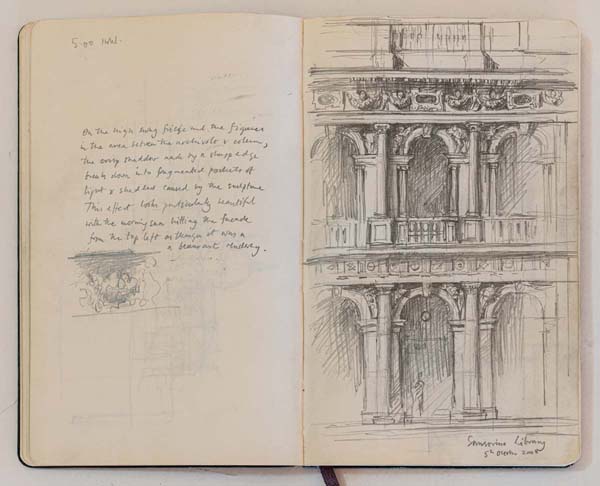 On the high swag frieze and the figures
in the area between the archivolt & column,
the crisp shadow made by a sharp edge
breaks down into fragmented pockets of
light & shadow caused by the sculpture
This effect looks particularly beautiful
with the morning sun hitting the facade
from the top left as though it was a
beaux-arts rendering.
Sansovino Library
5th 2008